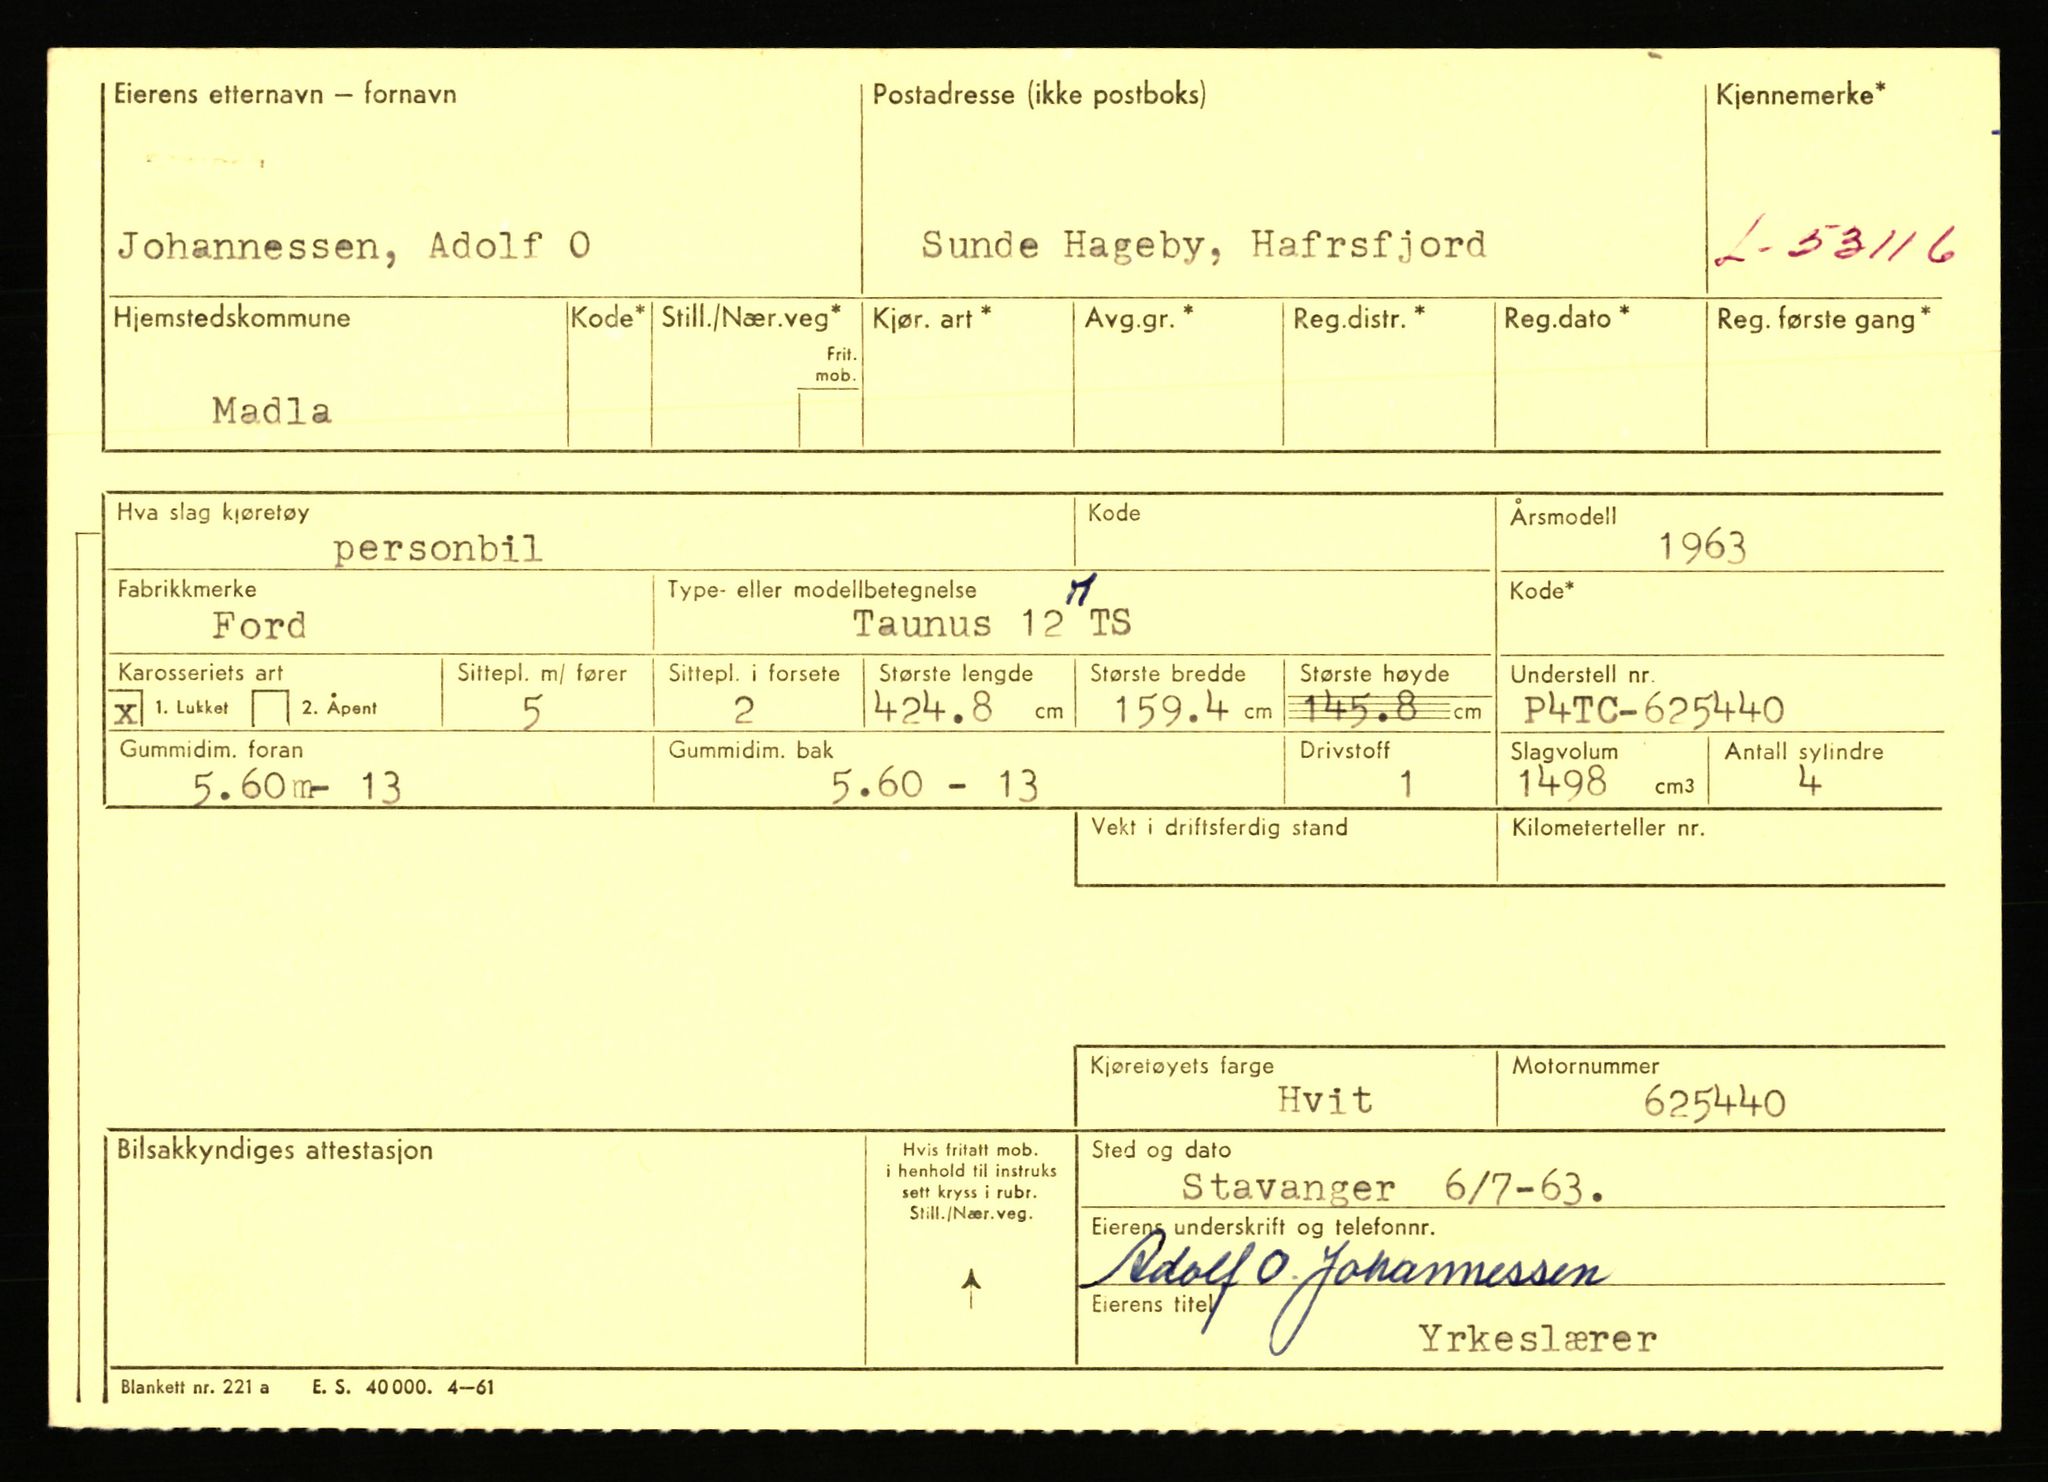 Eierens etternavn – fornavn Postadresse (ikke postboks) Kjennemerke*
Johannessen, Adolf O Sunde Hageby, Hafrsfjord L-53116
Hjemstedskommune Kode* Still./Nær.veg* Kjør. art* Avg.gr.* Reg.distr.* Reg.dato* Reg. første gang*
Frit.
mob.
Madla
Hva slag kjøretøy Kode Årsmodell
personbil 1963
Fabrikkmerke Type- eller modellbetegnelse Kode*
Ford Taunus 12 M TS
Karosseriets art Sittepl. m/ fører Sittepl. i forsete Største lengde Største bredde Største høyde Understell nr.
x 1. Lukket 2. Åpent 5 2 424.8 cm 159.4 cm 145.8 cm P4TC-625440
Gummidim. foran Gummidim. bak Drivstoff Slagvolum Antall sylindre
5.60m- 13 5.60 - 13 1 1498 cm3 4
Vekt i driftsferdig stand Kilometerteller nr.
Kjøretøyets farge Motornummer
Hvit 625440
Bilsakkyndiges attestasjon Hvis fritatt mob. Sted og dato
i henhold til instruks
sett kryss i rubr. Stavanger 6/7-63.
Still./Nær.veg.
Eierens underskrift og telefonnr.
Adolf O. Johannessen
Eierens titel
Yrkeslærer
Blankett nr. 221 a E. S. 40 000. 4–61